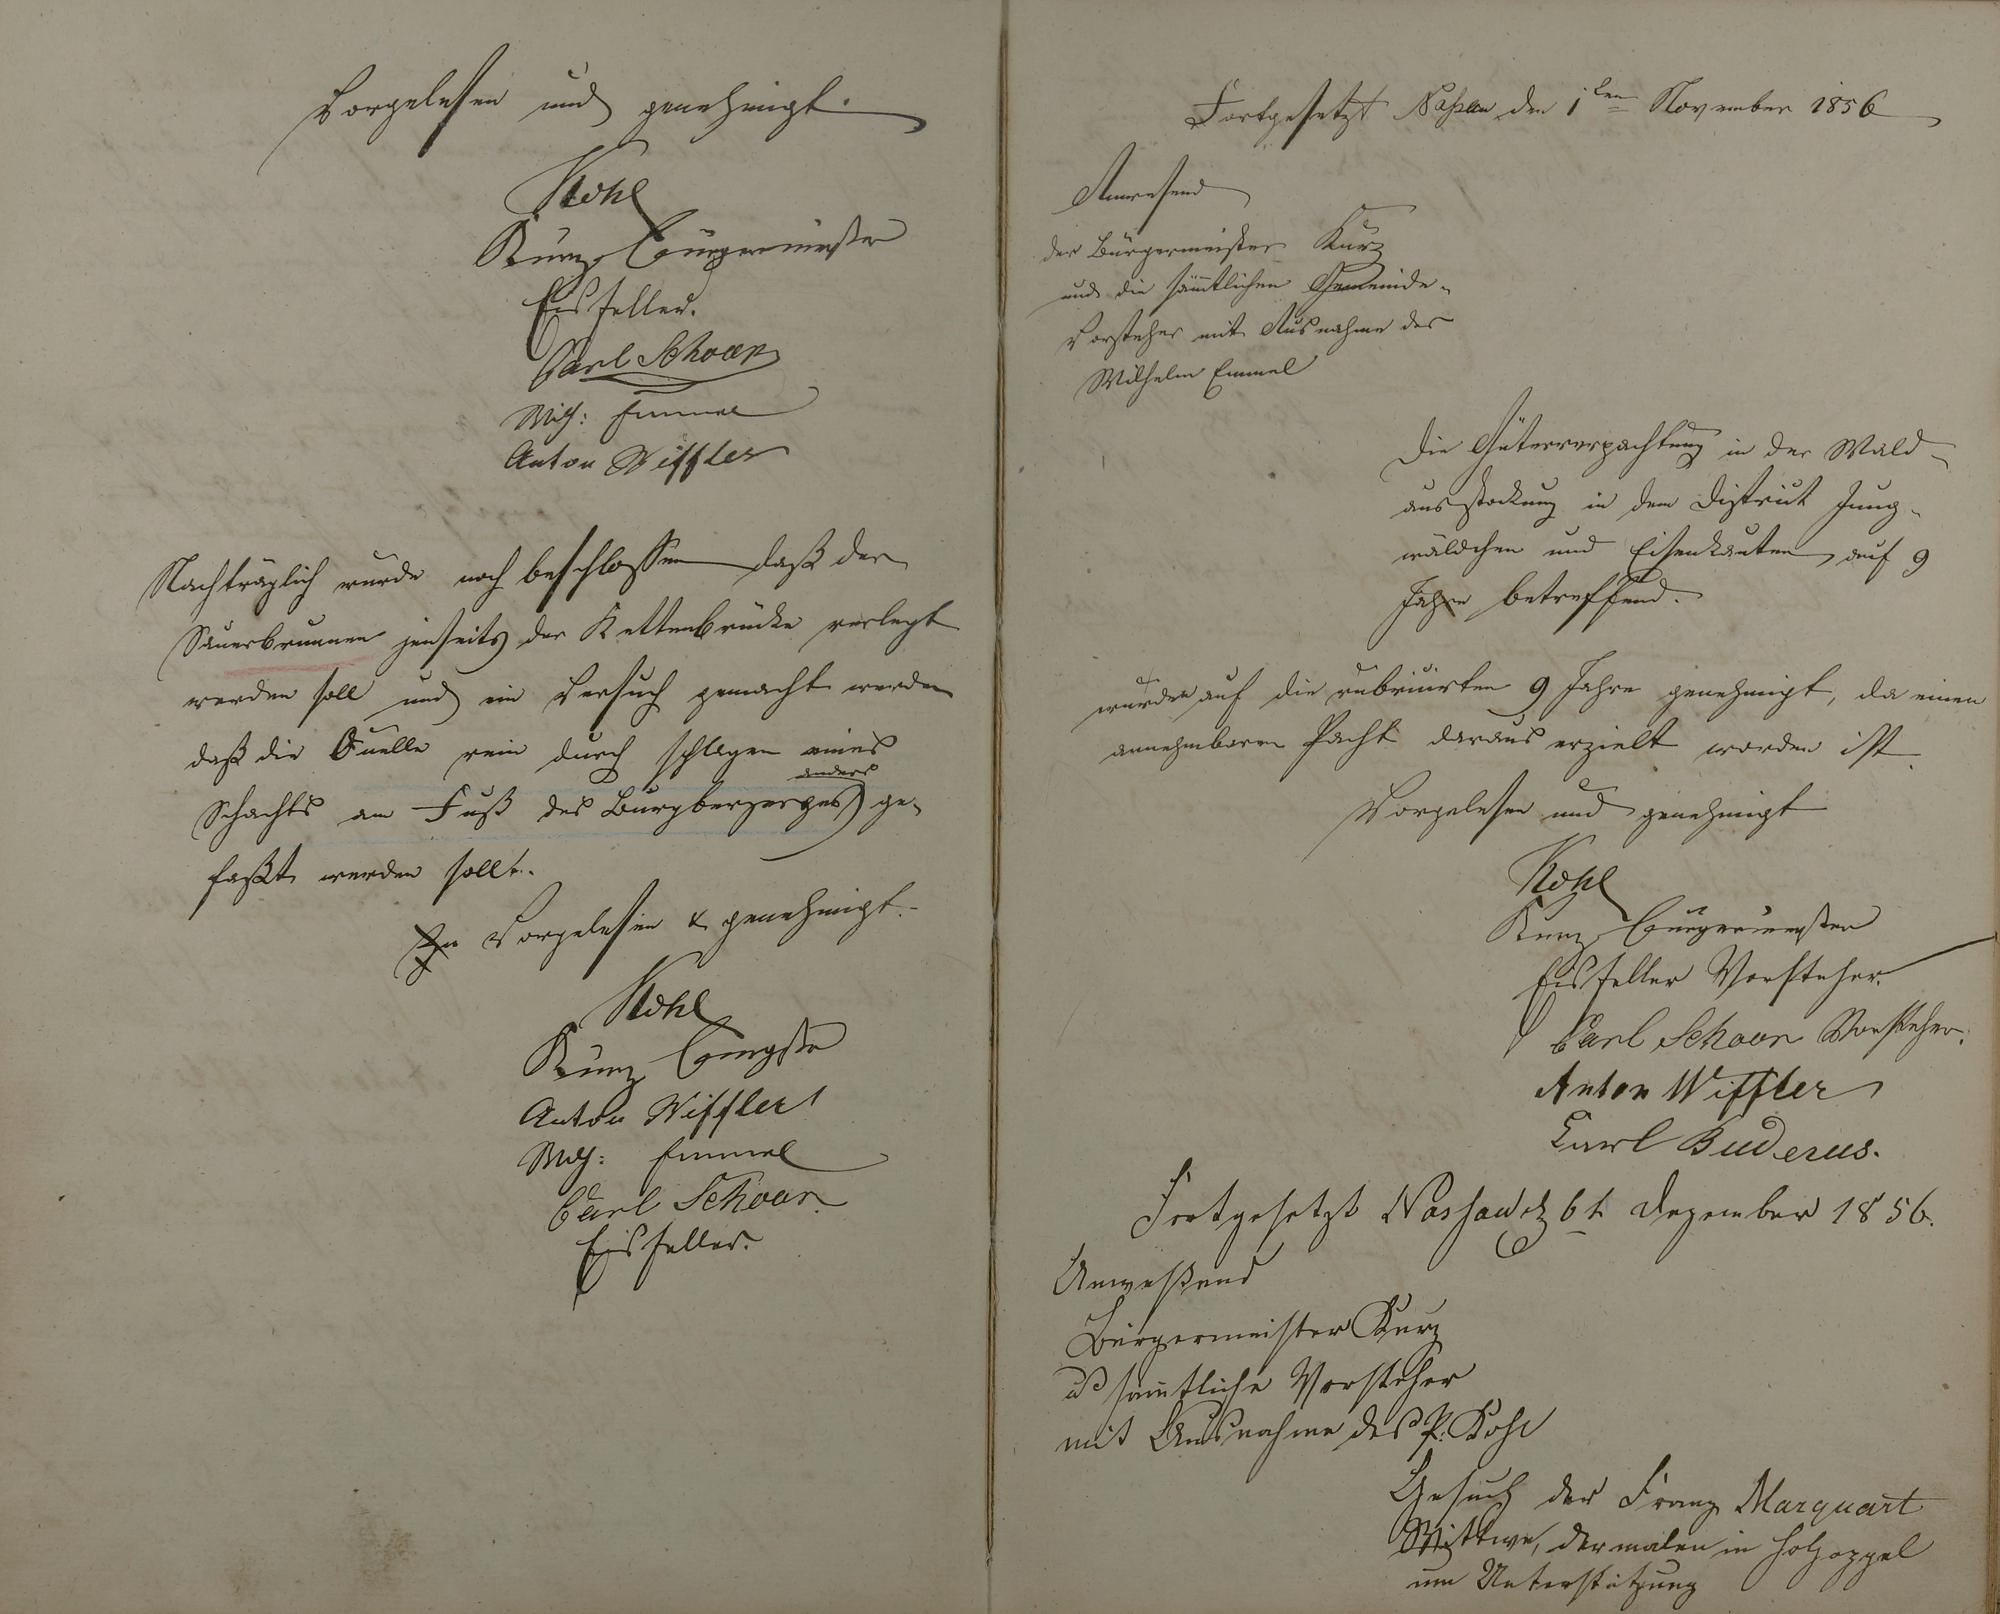 Vorgelesen und genehmigt.
Kohl
Kurz Bürgermeister
Eisfeller.
Carl Schoar
Wilh: Emmel
Anton Wiffler
Nachträglich wurde noch beschlossen daß der
Sauerbrunnen jenseits der Kettenbrücke verlegt
werden soll und ein Versuch gemacht werden
daß die Quelle rein durch schlagen eines
anders
Schachts am Fuß des Burgberges ge-
faßt werden sollt.
Vorgelesen & genehmigt.
Kohl
Kurz Brgmstr
Anton Wiffler
Wilh: Emmel
Carl Schoar
Eisfeller.
Fortgesetzt Nassau den 1ten November 1856
Anwesend
der Bürgermeister Kurz
und die sämtlichen Gemeinde-
Vorsteher mit Ausnahme des
Wilhelm Emmel
Die Güterverpachtung in der Wald-
ausstockung in dem District Jung-
wäldchen und Eisenkauten auf 9
Jahre betreffend.
wurde auf die rubricirten 9 Jahre genehmigt, da einen
annehmbaren Pacht daraus erzielt worden ist.
Vorgelesen und genehmigt
Kohl
Kurz Bürgermeister
Eisfeller Vorsteher.
Carl Schoar Vorsteher.
Anton Wiffler
Carl Buderus.
Fortgesetzt Nassau d 6t Dezember 1856.
Anweßend
Bürgermeister Kurz
u sämtliche Vorsteher
mit Ausnahme des P. Kohl
Gesuch der Franz Marquart
Wittwe, dermalen in Holzappel
um Unterstützung